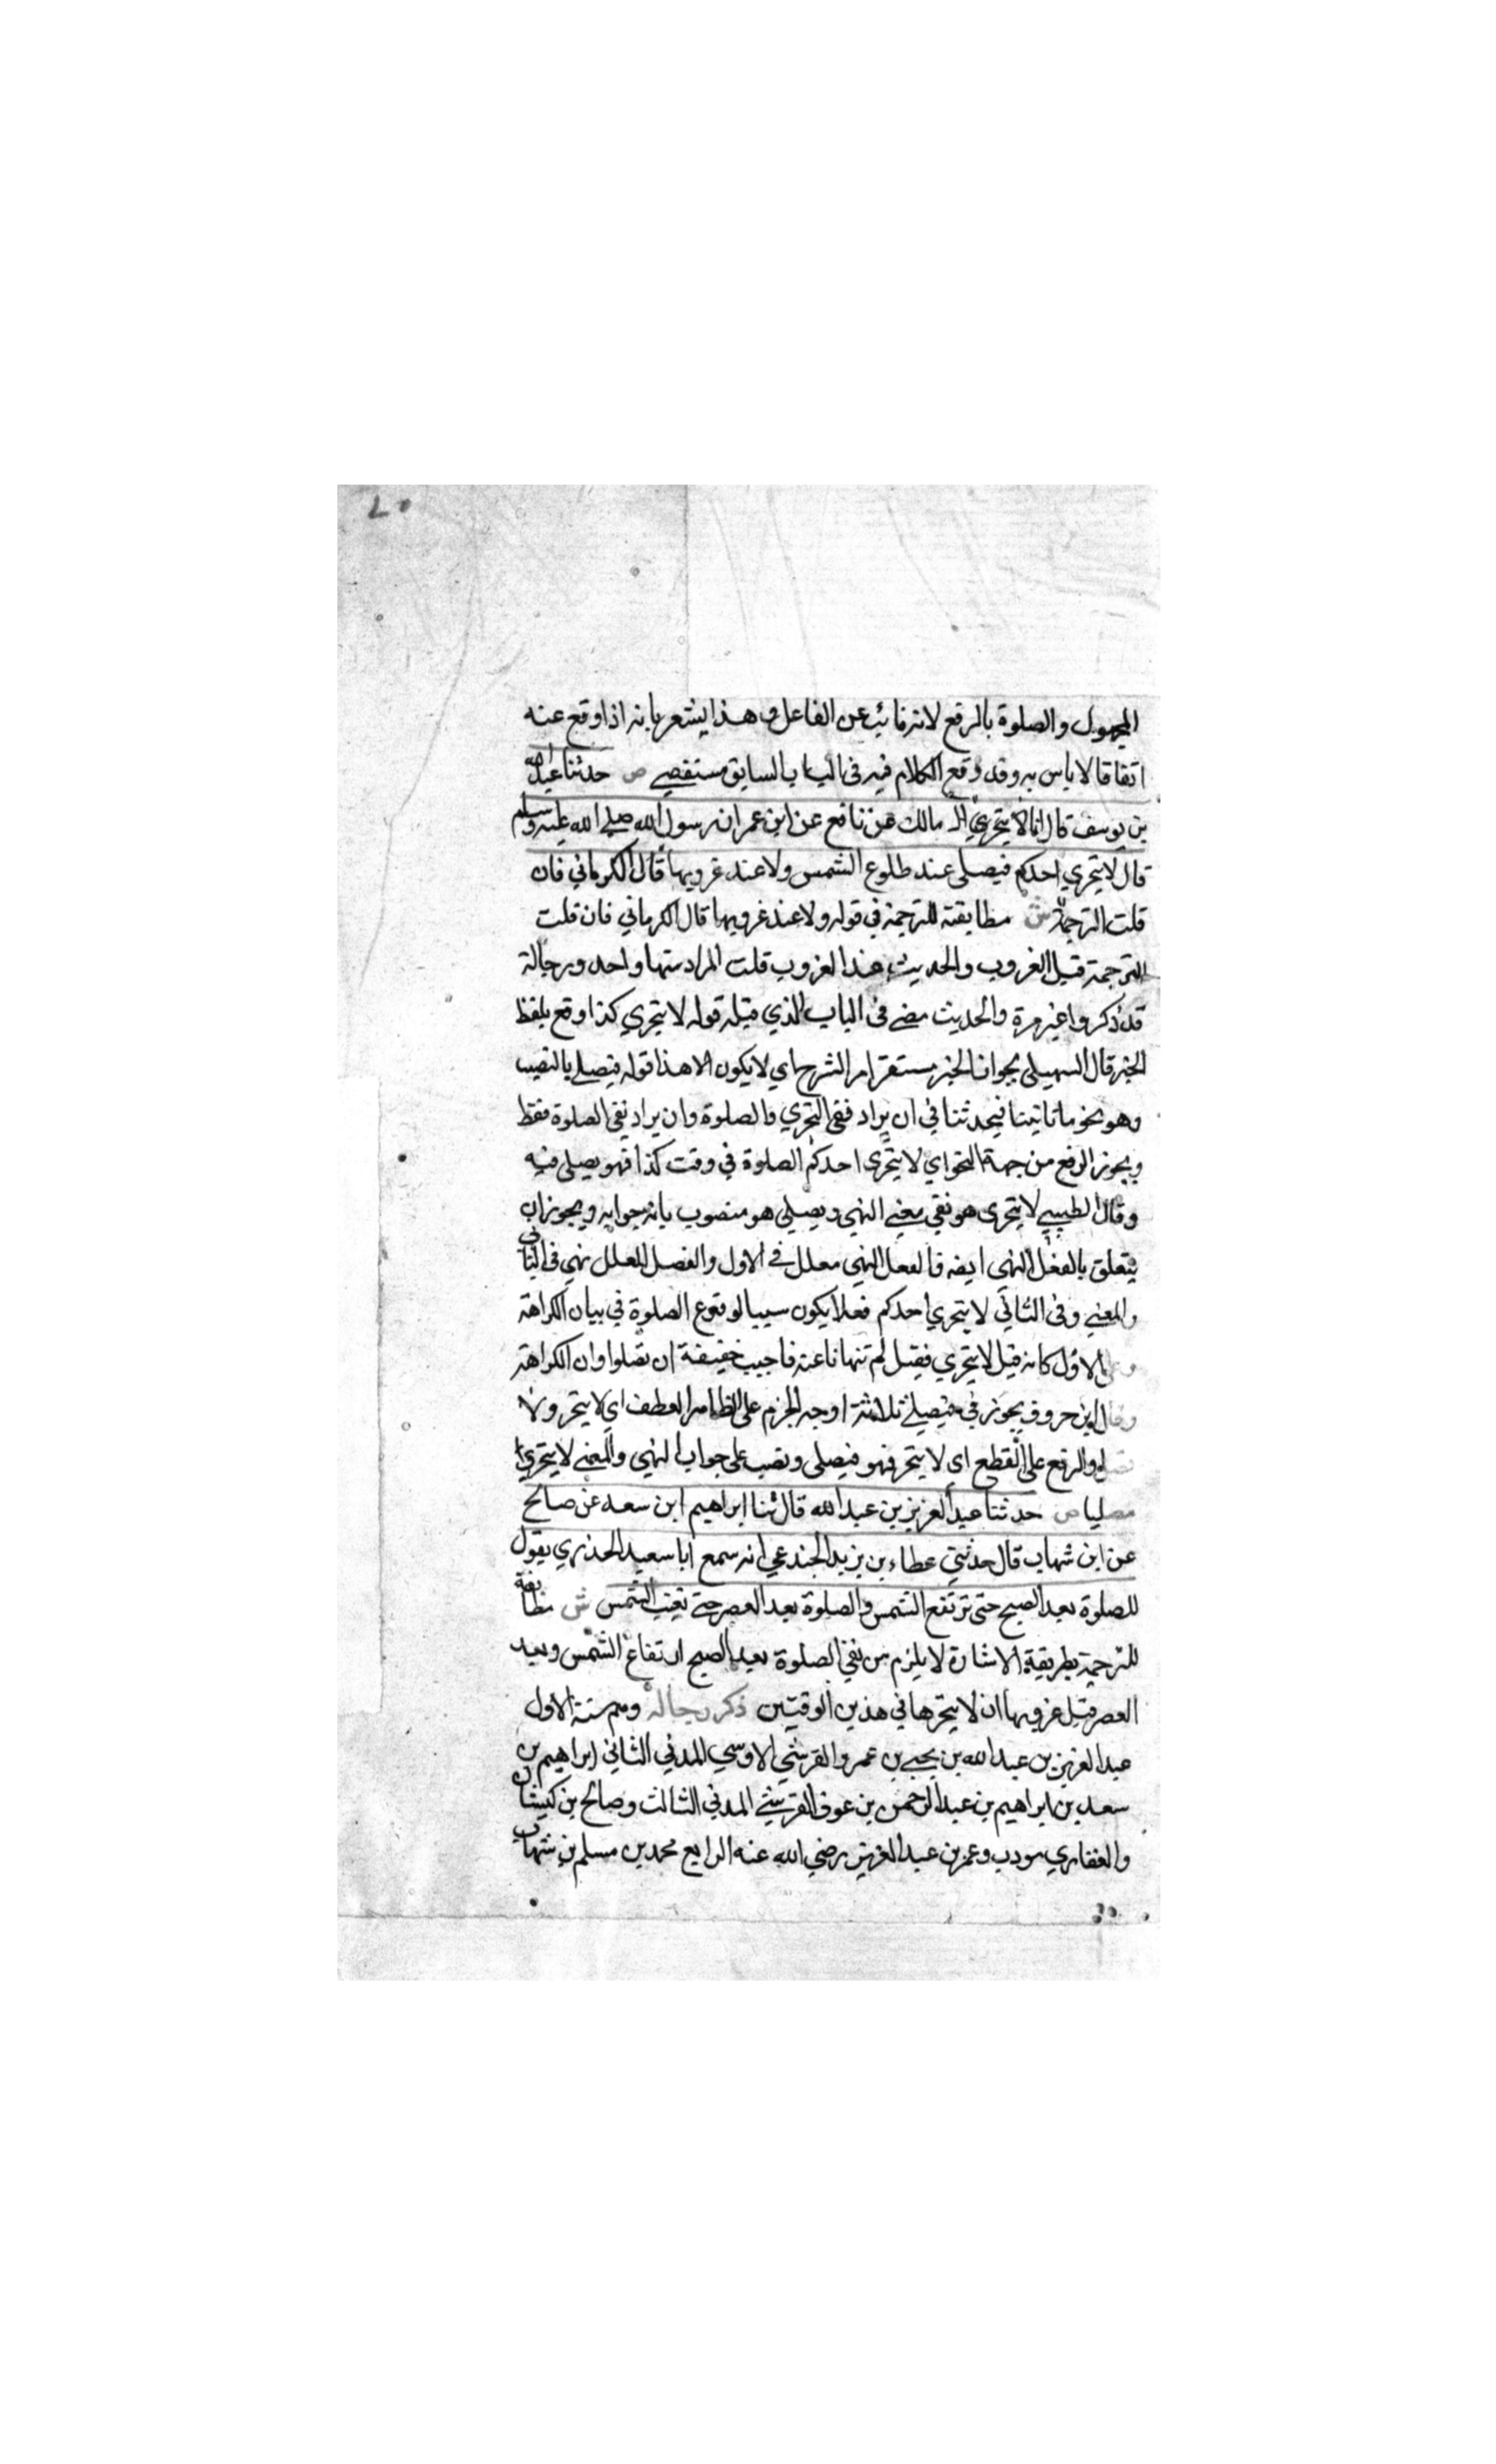 المجهول والصلوة بالرفع لانه نائب عن الفاعل وهذا يشعر بانه اذا وقع عنه
اتفاقا لا باس به وقد وقع الكلام فيه في الباب السابق مستقصي ص حدثنا عبد الله
بن يوسف قال مالك عن نافع عن ابن عمر ان رسول الله صلى الله عليه وسلم
قال لا يتحري احدكم فيصلى عند طلوع الشمس ولا عند غروبها قال الكرماني فان
قلت الترجمة ش مطابقته للترجمة في قوله ولا عند غروبها قال الكرماني فان قلت
الترجمة قبل الغروب والحديث عند الغروب قلت المراد منها واحد ورجاله
قد ذكروا غير مرة والحديث مضى في الباب الذي قبله قوله لا يتحري كذا وقع بلفظ
الخبر قال السهيلى يجوز الخبر مستقر امر الشرح اي لا يكون الا هذا قوله فيصلي بالنصب
وهو نحو ما تاتينا فيحدثنا في ان يراد نفي التحري والصلوة وان يراد نفي الصلوة فقط
ويجوز الرفع من جهة النحو اي لا يتحرى احدكم الصلوة في وقت كذا فهو يصلى فيه
وقال الطيبي لا يتحرى هو نفي بمعنى النهي ويصلي هو منصوب بانه جوابه ويجوز ان
يتعلق بالفعل النهي ايضه فالفعل النهي معلل في الاول والفصل المعلل نهي في الثاني
والمعني وفى الثاني لا يتحري احدكم فعلا يكون سببا لوقوع الصلوة في بيان الكراهة
وعلى الاول كانه قيل لا يتحري فقيل لم تنهانا عنه فاجيب خفيفة ان تصلوا وان الكراهة
وقال ابن خروف يجوز في فيصلي ثلاثة اوجه الجزم على الظاهر العطف اي لا يتحر ولا
تصل والرفع على القطع اي لا يتحر فهو فيصلى ونصب على جواب النهي والمعنى لا يتحري
مصليا ص حدثنا عبد العزيز بن عبد الله قال ثنا ابراهيم ابن سعد عن صالح
عن ابن شهاب قال حدثني عطاء بن يزيد الجندعي انه سمع ابا سعيد الخدري يقول
للصلوة بعد الصبح حتى ترتفع الشمس والصلوة بعد العصر حتى تغيب الشمس ش مطابقة
للترجمة بطريقة الاشارة لا يلزم من نفي الصلوة بعد الصبح ارتفاع الشمس وبعد
العصر قبل غروبها ان لا يتحرها في هذين الوقتين ذكر رجاله وهم ستة الاول
عبد العزيز بن عبد الله بن يحيى بن عمرو القرشي الاوسي المدني الثاني ابراهيم بن
سعد بن ابراهيم بن عبد الرحمن بن عوف القرشي المدني الثالث وصالح بن كيسان
والغفاري مودب وعمر بن عبد العزيز رضي الله عنه الرابع محمد بن مسلم بن شهاب